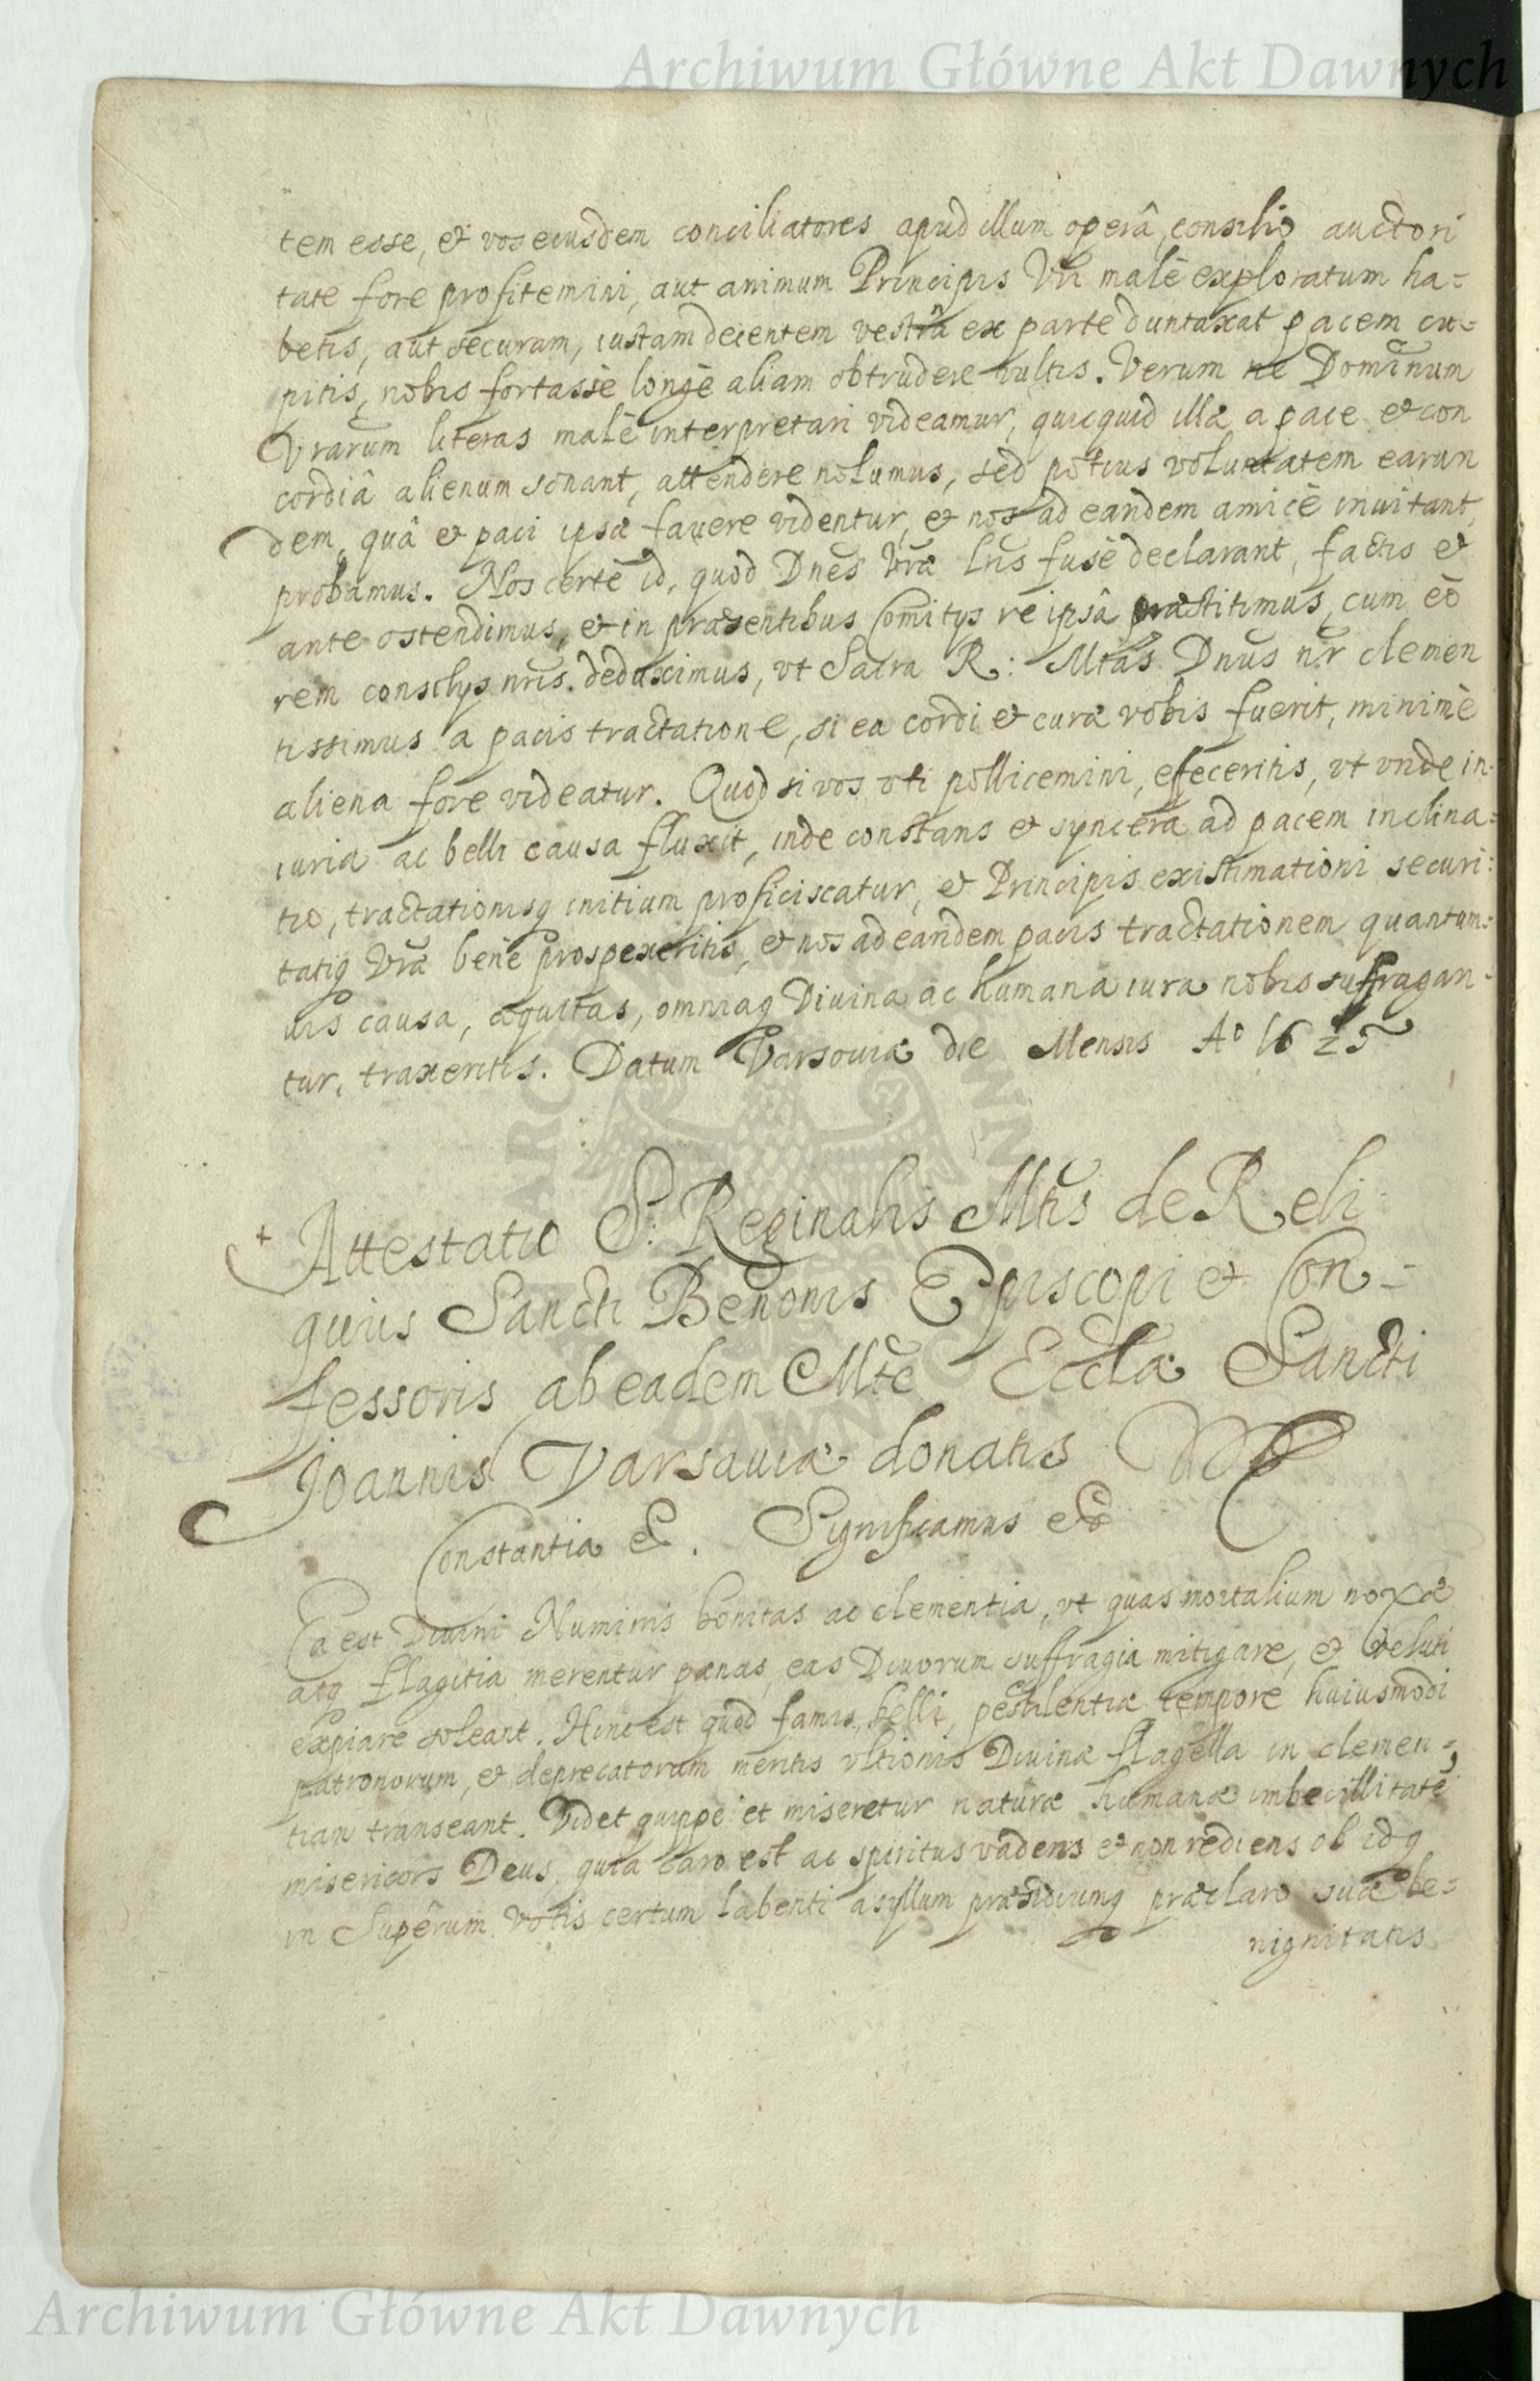 Archiwum Główne Akt Dawnych
tem esse, et vos eiusdem conciliatores apud illum operâ, consilio auctori
tate fore profitemini, aut animum Principis Vri malè exploratum ha=
betis, aut securam, iustam decentem vestrâ ex parte duntaxat pacem cu=
pitis, nobis fortassè longè aliam obtrudere vultis. Verum ne Dominum
Vrarum literas malè interpretari videamur, quicquid illæ a pace et con
cordiâ alienum sonant, attendere nolumus, sed potius voluntatem earun
dem, quâ et paci ipsæ favere videntur, et nos ad eandem amicè invitant,
probamus. Nos certè id, quod Dnes Vræ Lris fusè declarant, factis et
ante ostendimus, et in præsentibus Comitys re ipsâ præstitimus, cum eò
rem consilys nris deduximus, vt Sacra R: Mtas Dnus nr clemen
tissimus a pacis tractatione, si ea cordi et curæ vobis fuerit, minimè
aliena fore videatur. Quod si vos vti pollicemini, efeceritis, vt vnde in=
iuria ac belli causa fluxit, inde constans et syncera ad pacem inclina=
tio, tractationisq initium proficiscatur, et Principis existimationi securi=
tatiq Vra benè prospexeritis, et nos ad eandem pacis tractationem quantum=
uis causa, æquitas, omniaq Divina ac humana iura nobis suffragan=
tur, traxeritis. Datum Varsoviæ die Mensis Ao 1625
+ Attestatio S: Reginalis Mtis de Reli
quiis Sancti Benonis Episcopi et Con=
fessoris ab eadem Mte Eccla Sancti
Joannis Varsaviæ donatis
Constantia &. Significamus &
Ea est Divini Numinis bonitas ac clementia, vt quas mortalium noxæ
atq flagitia merentur pœnas, eas Divorum suffragia mitigare, et veluti
expiare soleant. Hinc est quod famis, belli, pestilentiæ tempore huiusmodi
patronorum, et deprecatorum meritis vltionis Divinæ flagella in clemen=
tian transeant. Videt quippe et miseretur naturæ humanæ imbecillitatē
misericors Deus, quia caro est ac spiritus vadens et non rediens ob idq
in Supêrum votis certum labenti asyllum præsidiumq præclaro suæ be=
nignitatis
Archiwum Główne Akt Dawnych